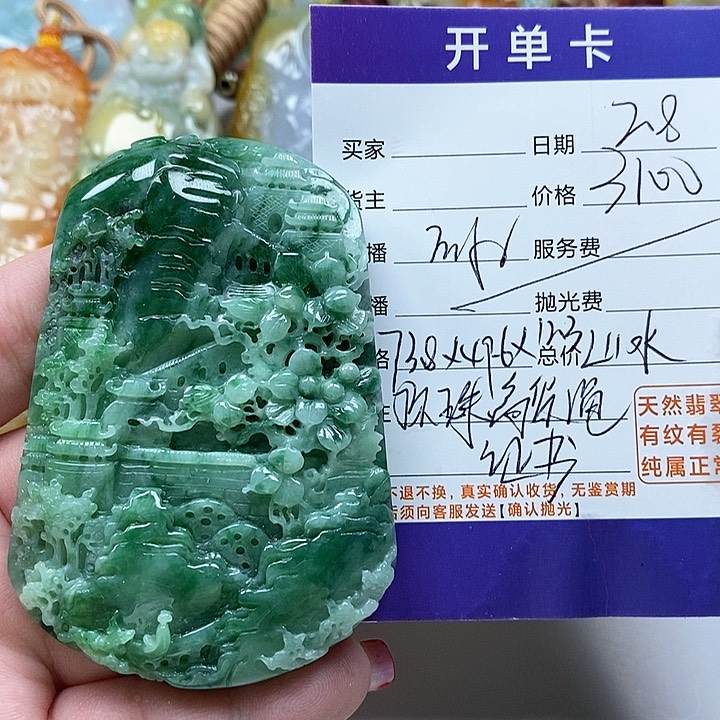 开单卡
买家 日期 2.8
货主 价格 3100
播 服务费
播 抛光费
格 73.8×49.6×12.3 总价 山水
配珠
证书
天然翡翠
有纹有裂
纯属正常
不退不换，真实确认收货，无鉴赏期
后须向客服发送【确认抛光】